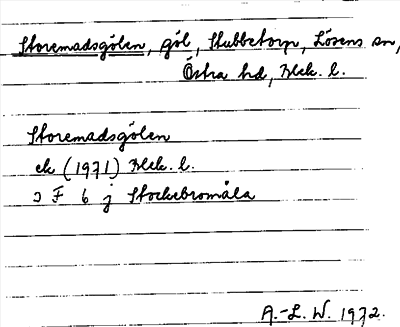 Storemadsgölen, göl, Stubbetorp, Lösens sn,
Östra hd, Blek. l.
Storemadsgölen
ek (1971) Blek. l.
ɔ F 6 j Stockebromåla
A.-L. W. 1972.